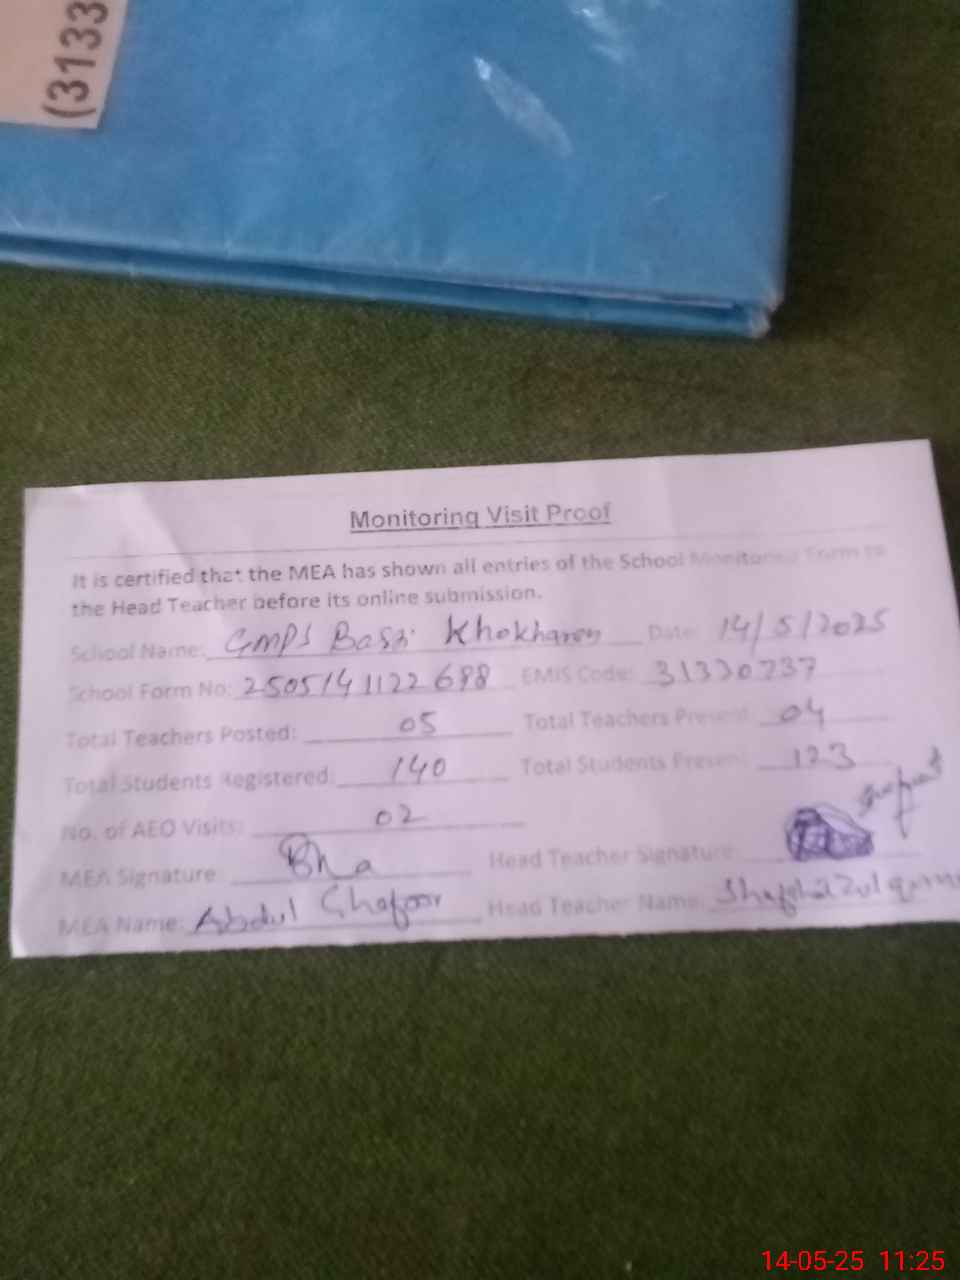 (3133
Monitoring Visit Proof
It is certified that the MEA has shown all entries of the School Monitoring Form to
the Head Teacher before its online submission.
School Name: GMPS Basti Khokharan Date: 14/5/2025
School Form No: 2505141122688 EMIS Code: 31330737
Total Teachers Posted: 05 Total Teachers Present: 04
Total Students Registered: 140 Total Students Present: 123
No. of AEO Visits: 02
MEA Signature Head Teacher Signature
MEA Name: Abdul Ghafoor Head Teacher Name:
14-05-25 11:25